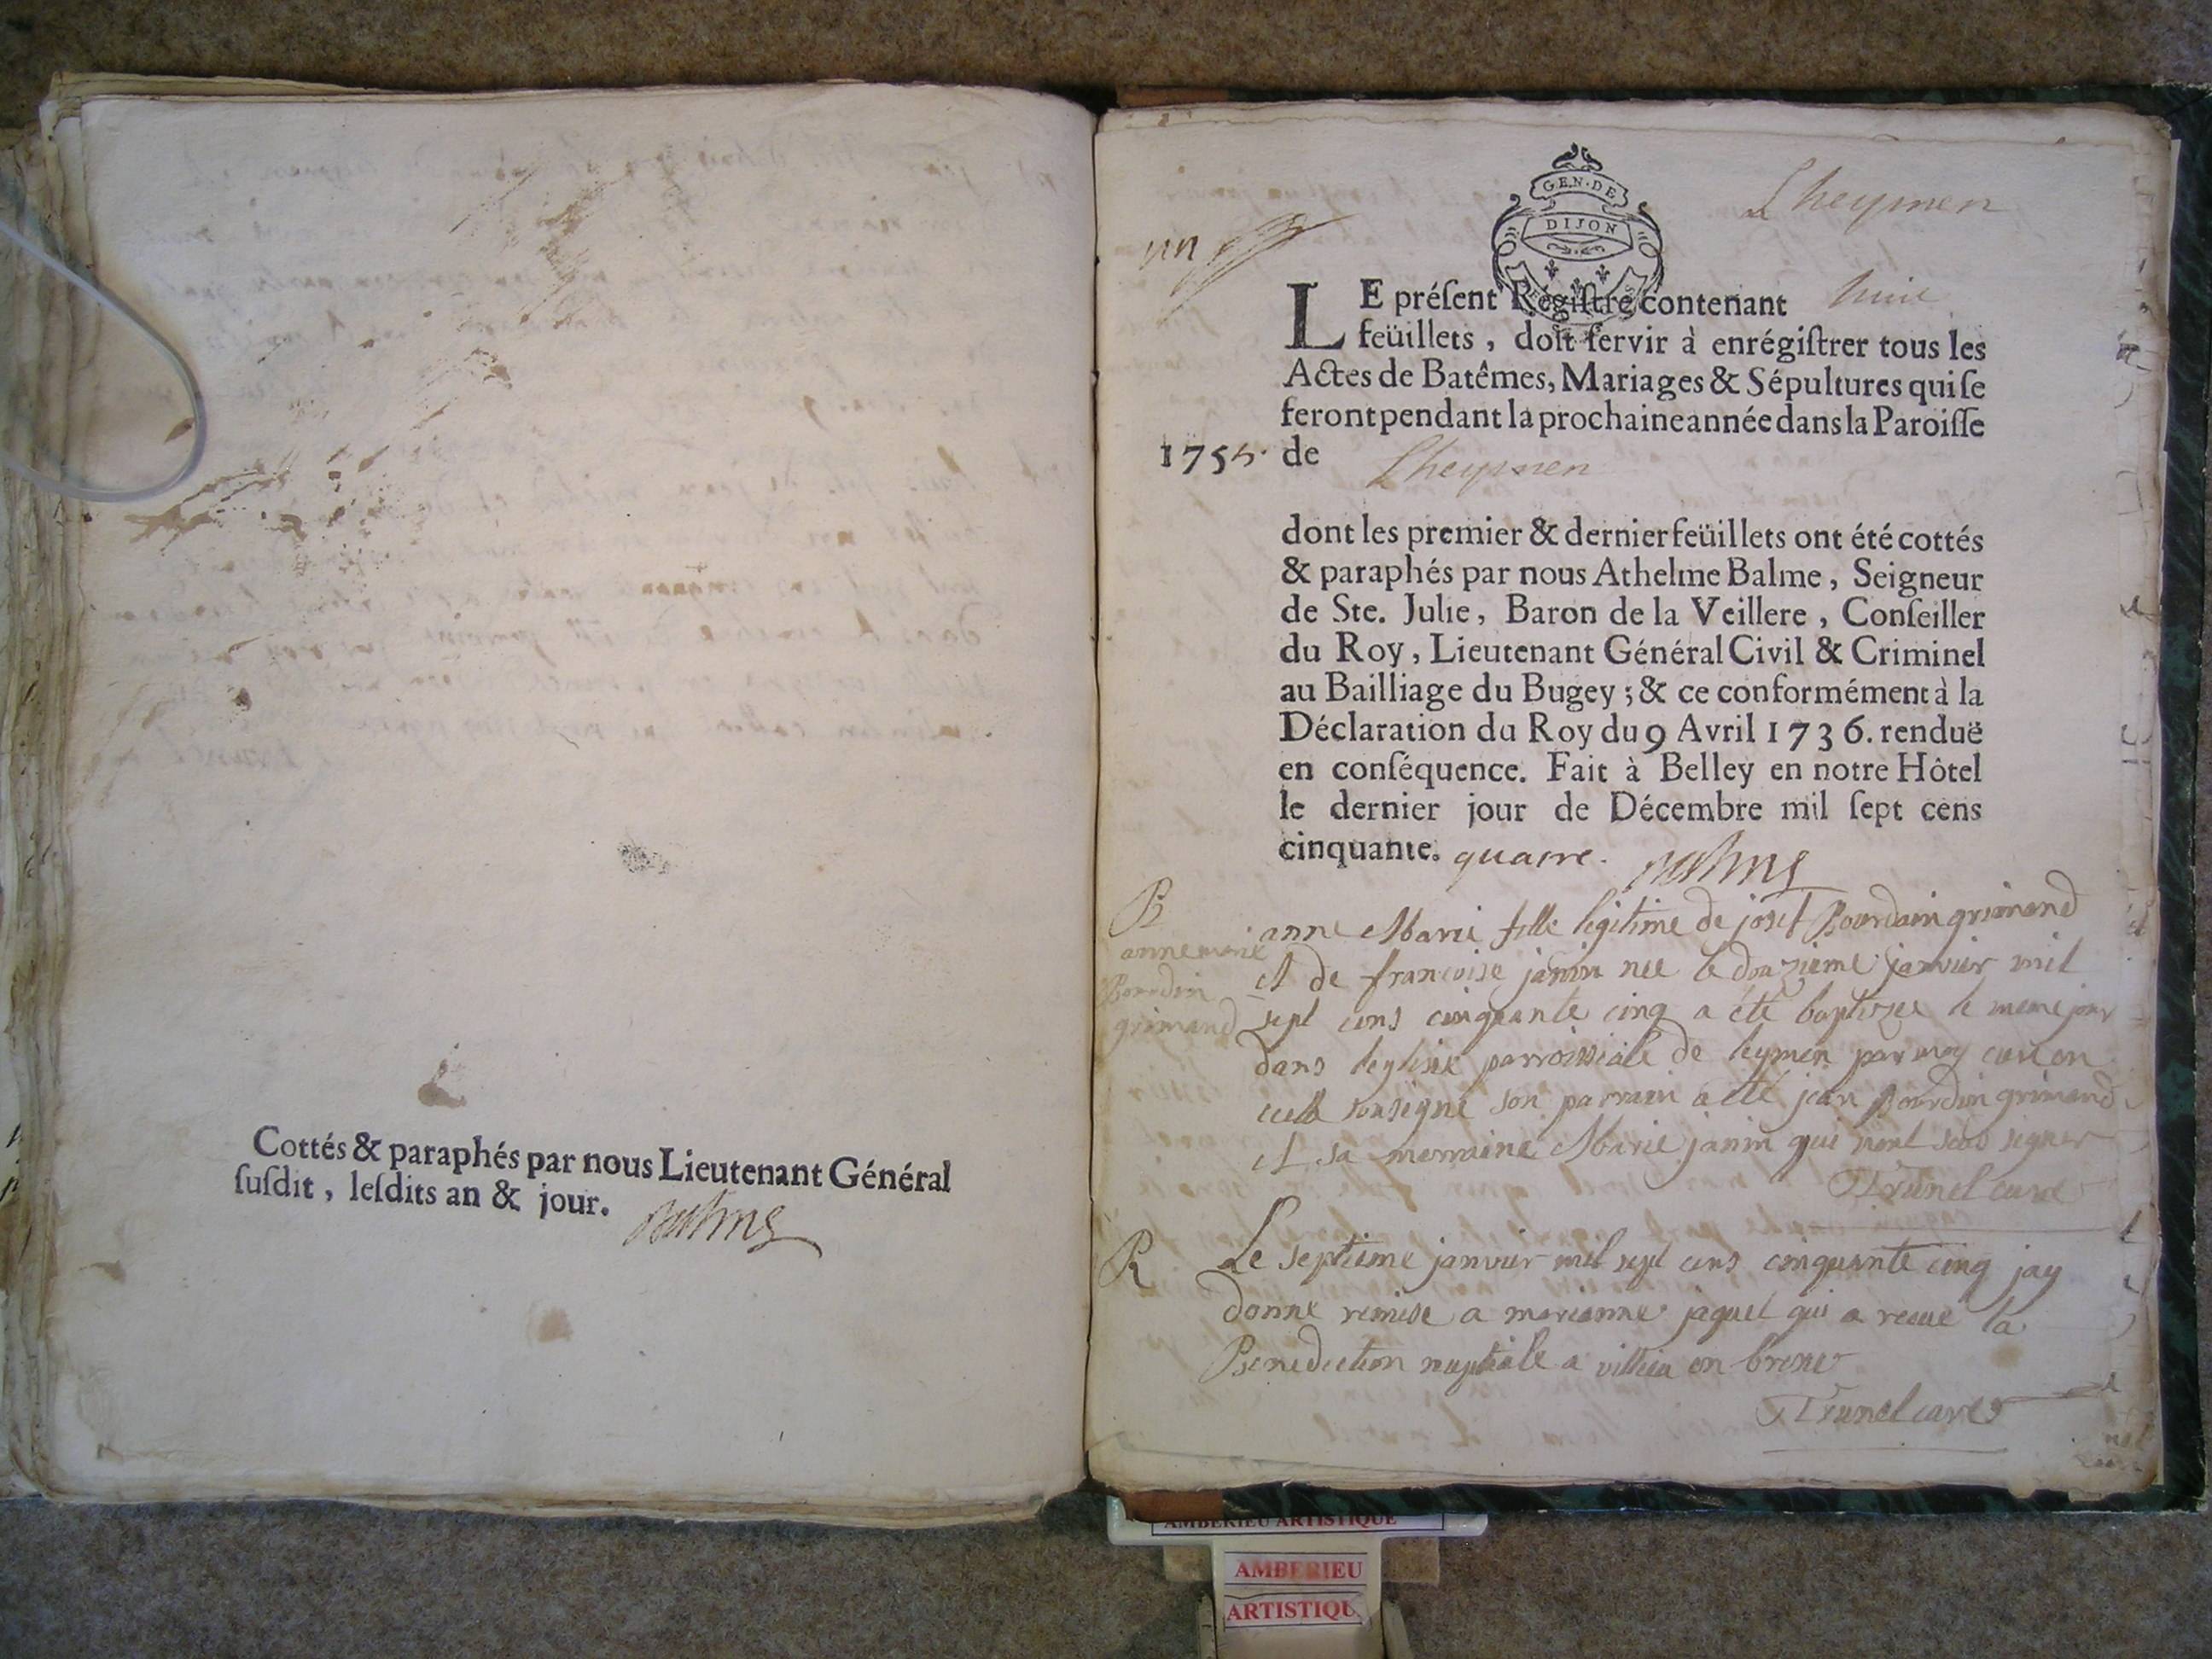 Cottés & paraphés par nous Lieutenant Général
ſuſdit, leſdits an & jour.
Balme
GEN·DE
DIJON
Lheymen
un
LE préſent Régiſtre contenant huit
feüillets, doit ſervir à enrégiſtrer tous les
Actes de Batêmes, Mariages & Sépultures qui ſe
feront pendant la prochaine année dans la Paroiſſe
1755. de Lheymen
dont les premier & dernier feüillets ont été cottés
& paraphés par nous Athelme Balme, Seigneur
de Ste. Julie, Baron de la Veillere, Conſeiller
du Roy, Lieutenant Général Civil & Criminel
au Bailliage du Bugey; & ce conformément à la
Déclaration du Roy du 9 Avril 1736. renduë
en conſéquence. Fait à Belley en notre Hôtel
le dernier jour de Décembre mil ſept cens
cinquante. quatre. Balme
B
anne marie
Bourdin
grimand
anne Marie fille legitime de josef Bourdain grimand
et de francoise janin nee le douzieme janvier mil
sept cens cinquante cinq a été baptizee le meme jour
dans leglise parroissiale de leymen par moy curé en
icelle sousigné son parrain a été jean Bourdin grimand
et sa marraine Marie janin qui n'ont scus signer
Trunel curé
R
Le septieme janvier mil sept cens cinquante cinq jay
donne remise a marianne jaquet qui a recue la
Benediction nuptiale a villieu en brene
Trunel curé
AMBERIEU ARTISTIQUE
AMBERIEU
ARTISTIQU